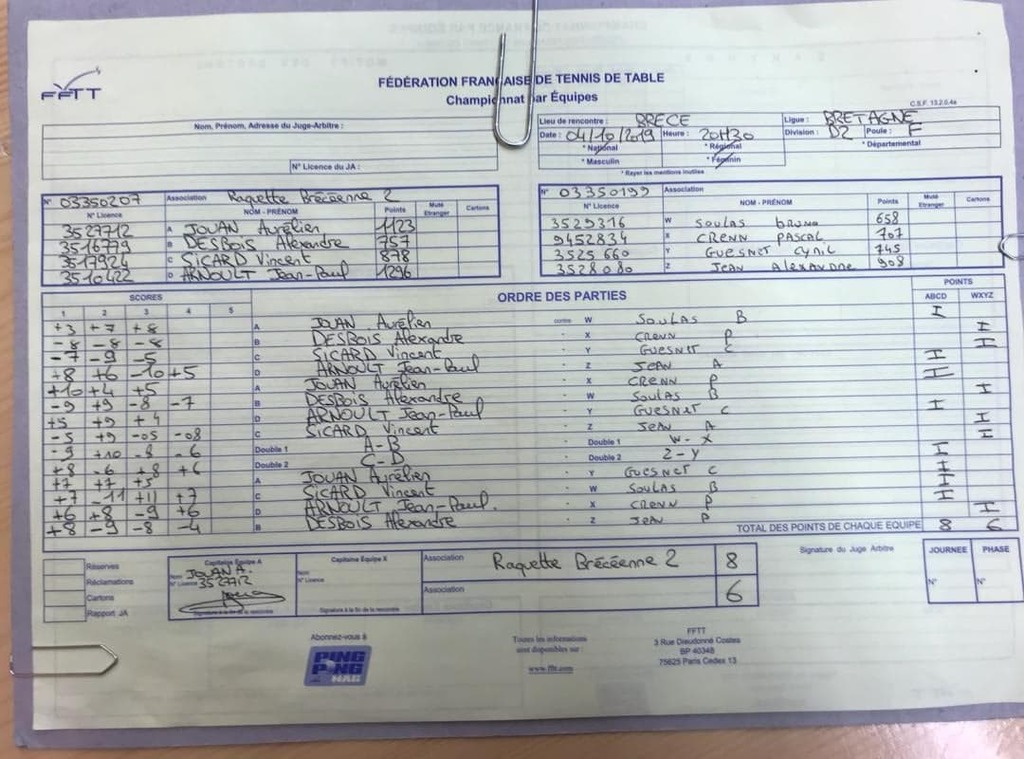 FFTT
FÉDÉRATION FRANÇAISE DE TENNIS DE TABLE
Championnat par Équipes
C.S.F. 13.2.0.4a
Nom, Prénom, Adresse du Juge-Arbitre :
N° Licence du JA :
Lieu de rencontre : BRECE Ligue : BRETAGNE
Date : 04/10/2019 Heure : 20H30 Division : D2 Poule : F
* National * Régional * Départemental
* Masculin * Féminin
* Rayer les mentions inutiles
N° 03350207 Association Raquette Brécéenne 2
N° Licence NOM - PRÉNOM Points Muté Etranger Cartons
3527712 A JOUAN Aurélien 1123
3516779 B DESBOIS Alexandre 757
3517924 C SICARD Vincent 878
3510422 D ARNOULT Jean-Paul 1296
N° 03350199 Association
N° Licence NOM - PRÉNOM Points Muté Etranger Cartons
3529316 W SOULAS bruno 658
9452834 X CRENN PASCAL 707
3525660 Y GUESNET Cyril 745
3528080 Z JEAN Alexandre 908
SCORES ORDRE DES PARTIES POINTS
1 2 3 4 5 ABCD WXYZ
+3 +7 +8 A JOUAN Aurélien contre W SOULAS B I
-8 -8 -8 B DESBOIS Alexandre - X CRENN P I
-7 -9 -5 C SICARD Vincent - Y GUESNET C I
+8 +6 -10 +5 D ARNOULT Jean-Paul - Z JEAN A I
+10 +4 +5 A JOUAN Aurélien - X CRENN P I
-9 +9 -8 -7 B DESBOIS Alexandre - W SOULAS B I
+5 +9 +4 D ARNOULT Jean-Paul - Y GUESNET C I
-5 +9 -05 -08 C SICARD Vincent - Z JEAN A I
-9 +10 -8 -6 Double 1 A-B - Double 1 W-X I
+8 -6 +8 +6 Double 2 C-D - Double 2 Z-Y I
+7 +7 +5 A JOUAN Aurélien - Y GUESNET C I
+7 -11 +11 +7 C SICARD Vincent - W SOULAS B I
+6 +8 -9 +6 D ARNOULT Jean-Paul. - X CRENN P I
+8 -9 -8 -4 B DESBOIS Alexandre - Z JEAN P I
TOTAL DES POINTS DE CHAQUE EQUIPE 8 6
Réserves
Réclamations
Cartons
Rapport JA
Capitaine Equipe A
Nom JOUAN A.
N° Licence 3527712
Signature à la fin de la rencontre
Capitaine Equipe X
Nom
N° Licence
Signature à la fin de la rencontre
Association Raquette Brécéenne 2 8
Association 6
Signature du Juge Arbitre
JOURNEE PHASE
N° N°
Abonnez-vous à
PING PONG MAG
Toutes les informations
sont disponibles sur :
www.fftt.com
FFTT
3 Rue Dieudonné Costes
BP 40348
75625 Paris Cedex 13